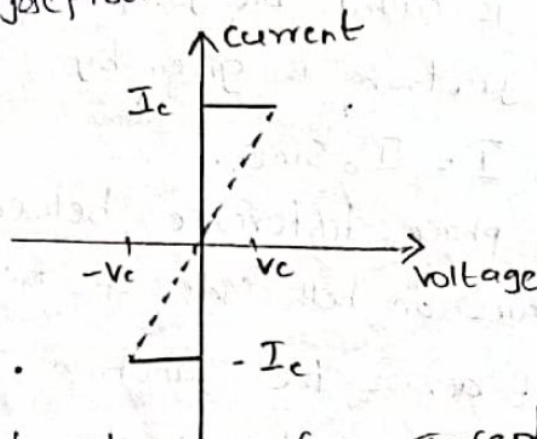 current
Ic
-Vc
Vc
voltage
- Ic